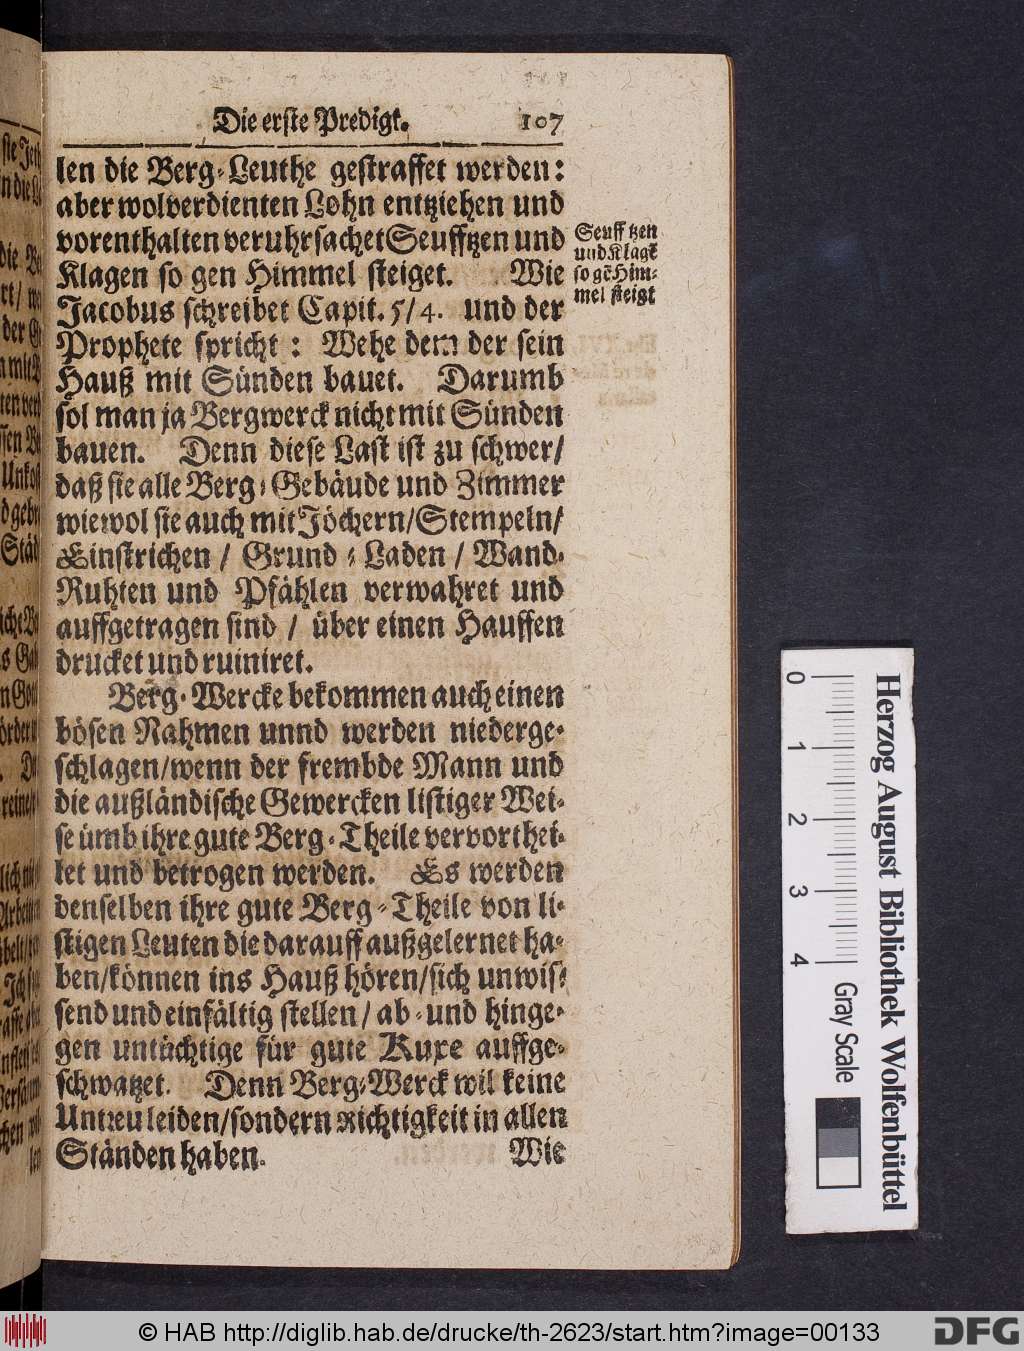 Die erste Predigt. 107
len die Berg-Leuthe gestraffet werden:
aber wolverdienten Lohn entziehen und
vorenthalten veruhrsachet Seufftzen und
Klagen so gen Himmel steiget. Wie
Jacobus schreibet Capit. 5/4. und der
Prophete spricht: Wehe dem der sein
Hauß mit Sünden bauet. Darumb
sol man ja Bergwerck nicht mit Sünden
bauen. Denn diese Last ist zu schwer/
daß sie alle Berg-Gebäude und Zimmer
wiewol sie auch mit Jöchern/Stempeln/
Einstrichen / Grund-Laden / Wand-
Ruhten und Pfählen verwahret und
auffgetragen sind / über einen Hauffen
drucket und ruiniret.
Berg-Wercke bekommen auch einen
bösen Nahmen unnd werden niederge-
schlagen/wenn der frembde Mann und
die außländische Gewercken listiger Wei-
se ümb ihre gute Berg-Theile vervorthei-
let und betrogen werden. Es werden
denselben ihre gute Berg-Theile von li-
stigen Leuten die darauff außgelernet ha-
ben/können ins Hauß hören/sich unwis-
send und einfältig stellen/ ab-und hinge-
gen untüchtige für gute Kuxe auffge-
schwatzet. Denn Berg-Werck wil keine
Untreu leiden/sondern Richtigkeit in allen
Ständen haben. Wie
Seufftzen
und Klagē
so gē Him-
mel steigt
0 1 2 3 4 Gray Scale
Herzog August Bibliothek Wolfenbüttel
© HAB http://diglib.hab.de/drucke/th-2623/start.htm?image=00133
DFG